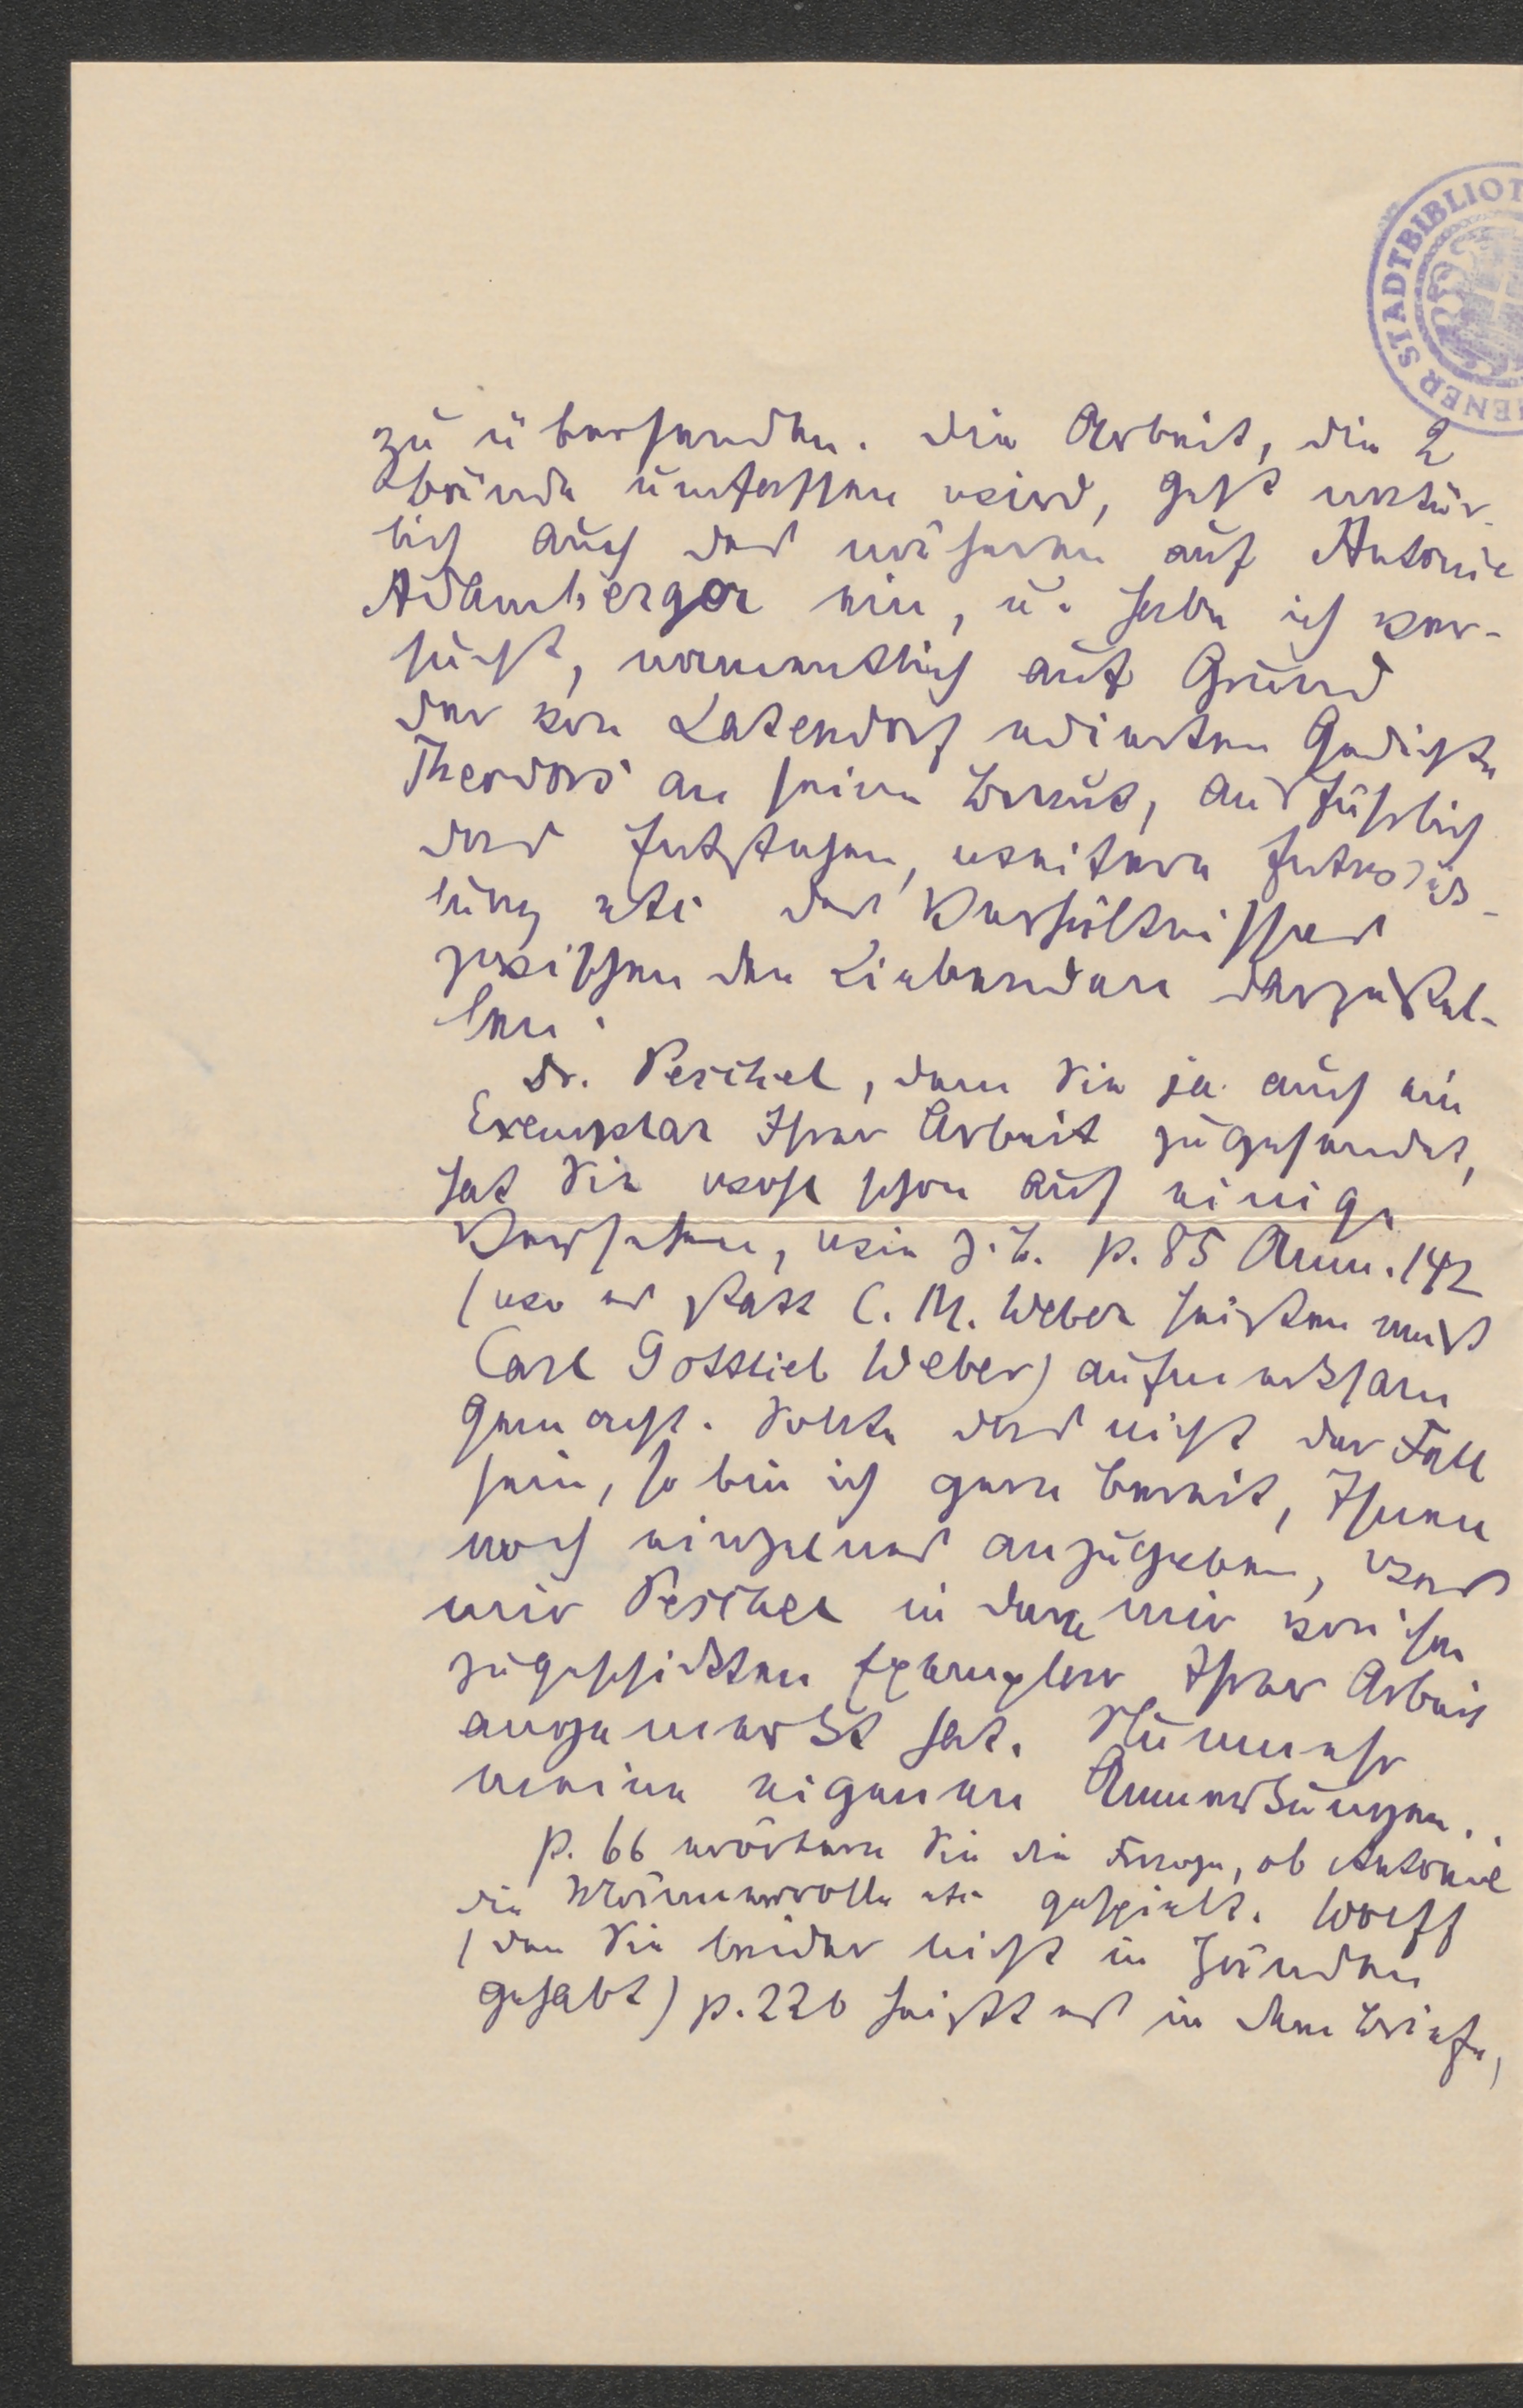 WIENER STADTBIBLIOT
zu übersenden. Die Arbeit, die 2
Bände umfassen wird, geht natür-
lich auch des näheren auf Antonie
Adamberger ein, u. habe ich ver-
sucht, namentlich auf Grund
der von Latendorf edierten Gedichte
Theodors an seine Braut, ausführlich
das Entstehen, weitere Entwick-
lung etc. des Verhältnisses
zwischen den Liebenden darzustel-
len.
Dr. Peschel, dem Sie ja auch ein
Exemplar Ihrer Arbeit zugesendet,
hat Sie wohl schon auf einige
Versehen, wie z. B. p. 85 Anm. 142
(wo es statt C. M. Weber heisten muß
Carl Gottlieb Weber) aufmerksam
gemacht. Sollte das nicht der Fall
sein, so bin ich gern bereit, Ihnen
noch einzelnes anzugeben, was
mir Peschel in dem mir von ihm
zugeschickten Exemplar Ihrer Arbeit
angemerkt hat. Nunmehr
meine eigenen Anmerkungen.
p. 66 erörtern Sie die Frage, ob Antonie
die Männerrolle etc. gespielt. Wolff
(den Sie leider nicht in Händen
gehabt) p. 226 heißt es in dem Briefe,